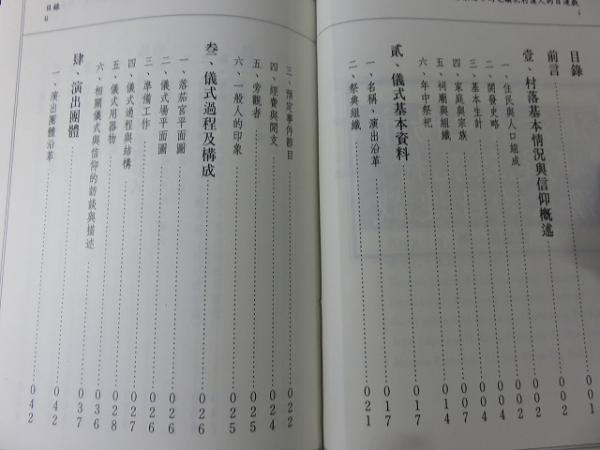 村漢人的目連戲
目錄
前言 001
壹、村落基本情況與信仰概述 002
一、住民與人口組成 002
二、開發史略
三、基本生計 004
四、家庭與宗族 004
五、祠廟與組織 007
六、年中祭祀 014
貳、儀式基本資料 017
一、名稱、演出沿革 017
二、祭典組織 021
三、預定事件節目 022
四、經費與開支 024
五、旁觀者 025
六、一般人的印象 025
叁、儀式過程及構成 026
一、落茄官平面圖 026
二、儀式場平面圖 026
三、準備工作 027
四、儀式過程與結構 028
五、儀式用器物 036
六、相關儀式與信仰的訪談與描述 037
肆、演出團體 042
一、演出團體沿革 042
目錄